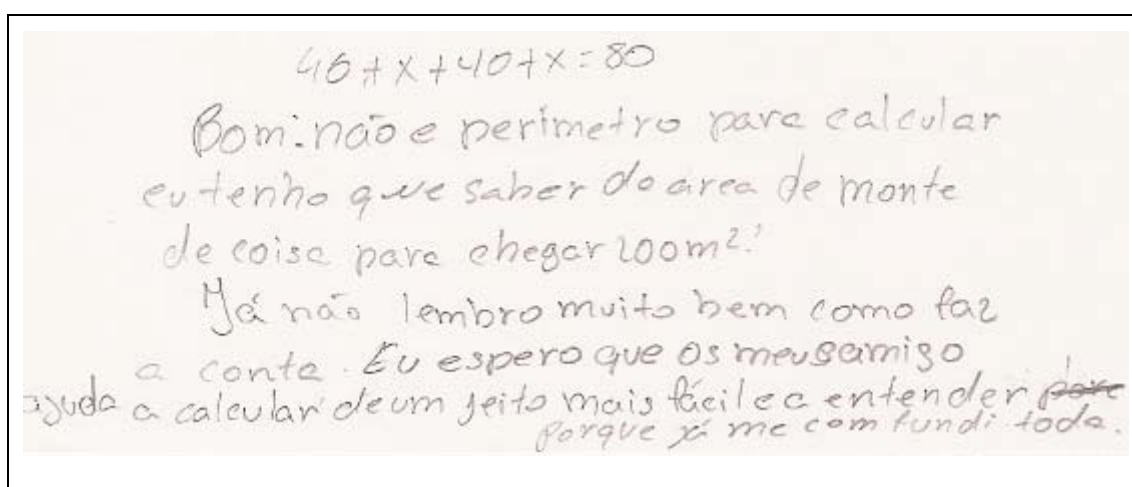 40+x+40+x=80
Bom: não e perimetro para calcular
eu tenho que saber do area de monte
de coisa para chegar 200m²!
Já não lembro muito bem como faz
a conta. Eu espero que os meus amigo
ajuda a calcular de um jeito mais fácil e a entender
porque já me comfundi toda.